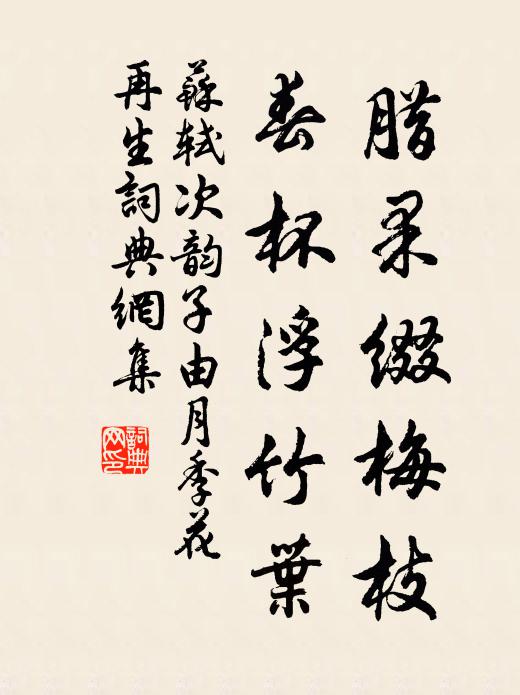 腊果綴梅枝
春杯浮竹葉
蘇軾次韵子由月季花
再生詞典網集
詞典
网印